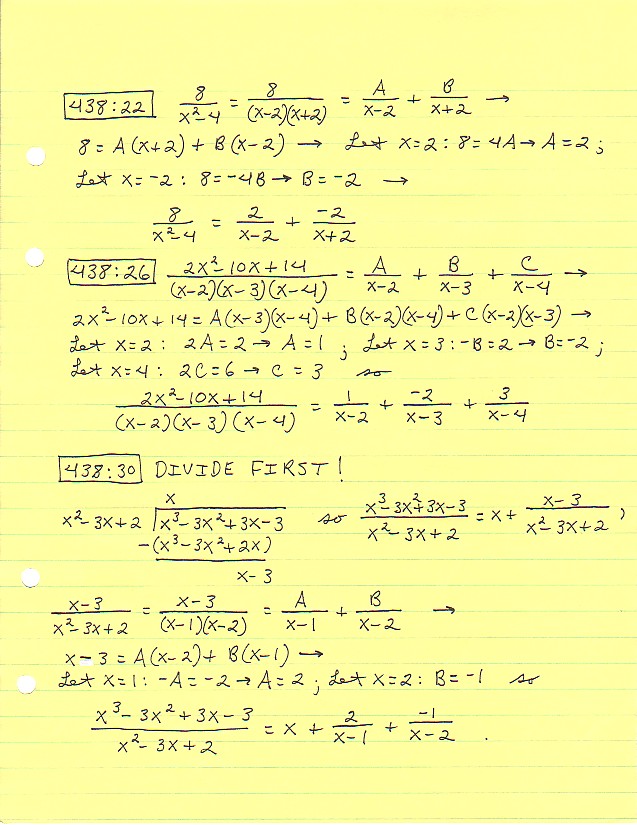 438:22 8/(x²-4) = 8/((x-2)(x+2)) = A/(x-2) + B/(x+2) →
8 = A(x+2) + B(x-2) → Let x=2 : 8=4A → A=2 ;
Let x=-2 : 8=-4B → B=-2 →
8/(x²-4) = 2/(x-2) + -2/(x+2)
438:26 (2x²-10x+14)/((x-2)(x-3)(x-4)) = A/(x-2) + B/(x-3) + C/(x-4) →
2x²-10x+14 = A(x-3)(x-4) + B(x-2)(x-4) + C(x-2)(x-3) →
Let x=2 : 2A=2 → A=1 ; Let x=3 : -B=2 → B=-2 ;
Let x=4 : 2C=6 → C = 3 so
(2x²-10x+14)/((x-2)(x-3)(x-4)) = 1/(x-2) + -2/(x-3) + 3/(x-4)
438:30 DIVIDE FIRST!
x
x²-3x+2 | x³-3x²+3x-3 so (x³-3x²+3x-3)/(x²-3x+2) = x + (x-3)/(x²-3x+2) ,
-(x³-3x²+2x)
x-3
(x-3)/(x²-3x+2) = (x-3)/((x-1)(x-2)) = A/(x-1) + B/(x-2) →
x-3 = A(x-2) + B(x-1) →
Let x=1 : -A=-2 → A=2 ; Let x=2 : B=-1 so
(x³-3x²+3x-3)/(x²-3x+2) = x + 2/(x-1) + -1/(x-2) .